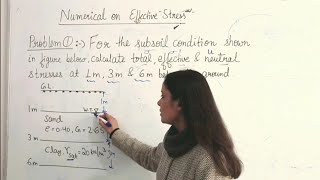 Numerical on Effective Stress
Problem ①:- For the subsoil condition shown
in figure below, calculate total, effective & neutral
stresses at 1m, 3m & 6m be ground
G.L
1m
1m
Sand
e = 0.40, G = 2.65
3m
Clay, γsat = 20 kN/m³
6m